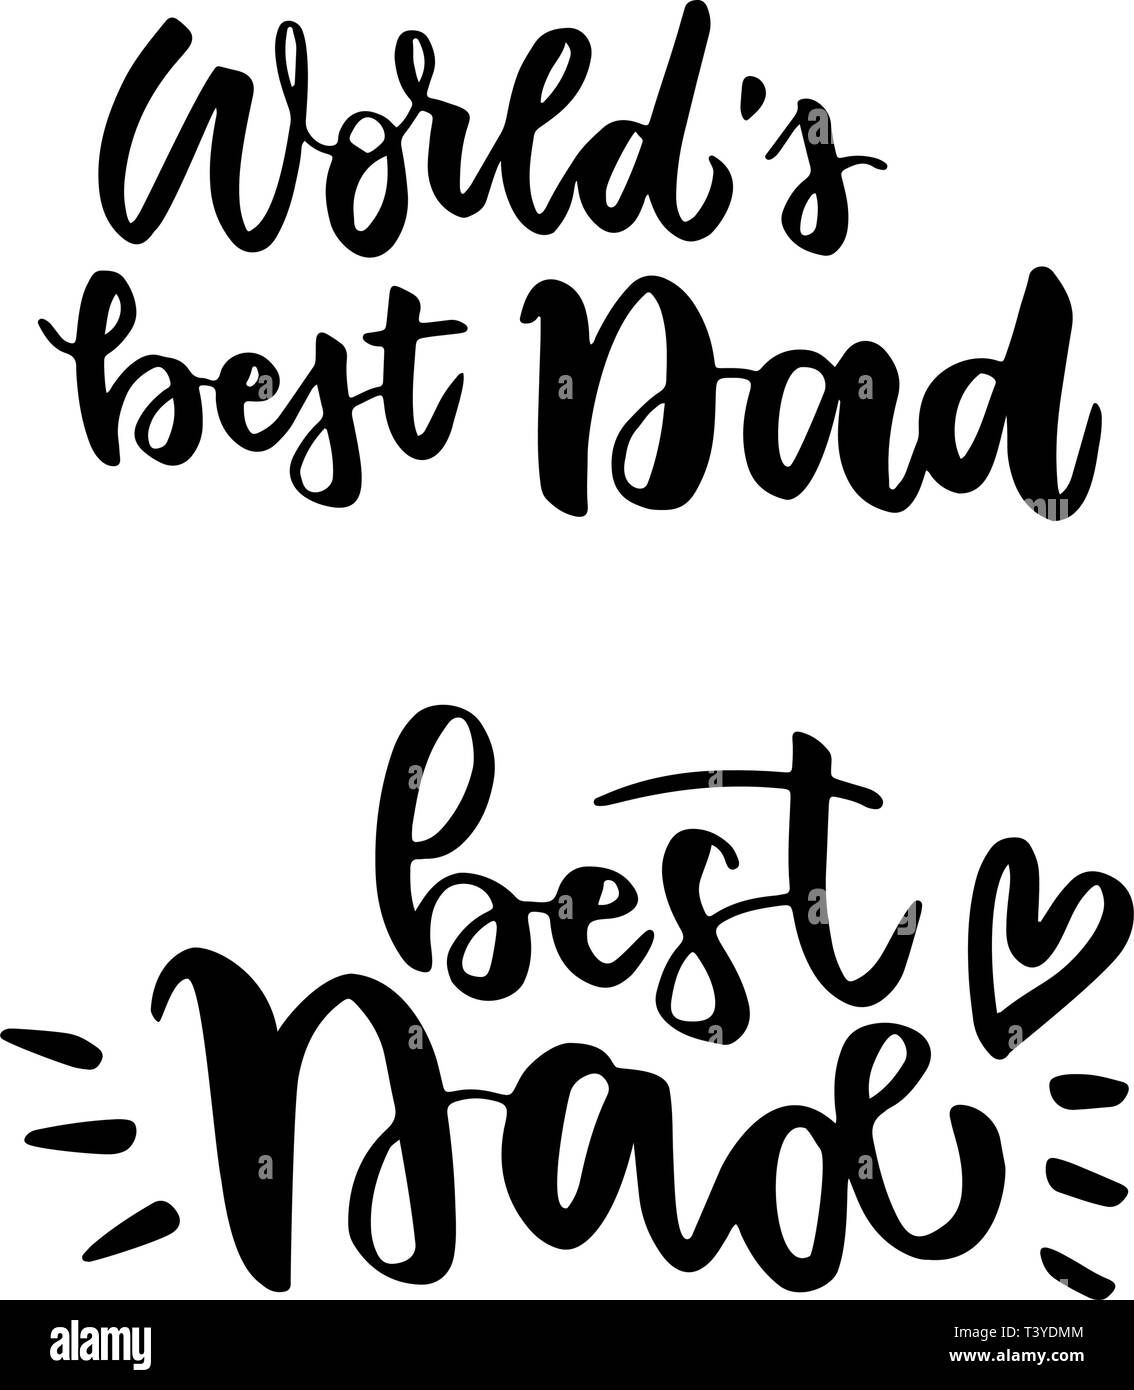 World's
best Dad
best
Dad
alamy
Image ID: T3YDMM
www.alamy.com